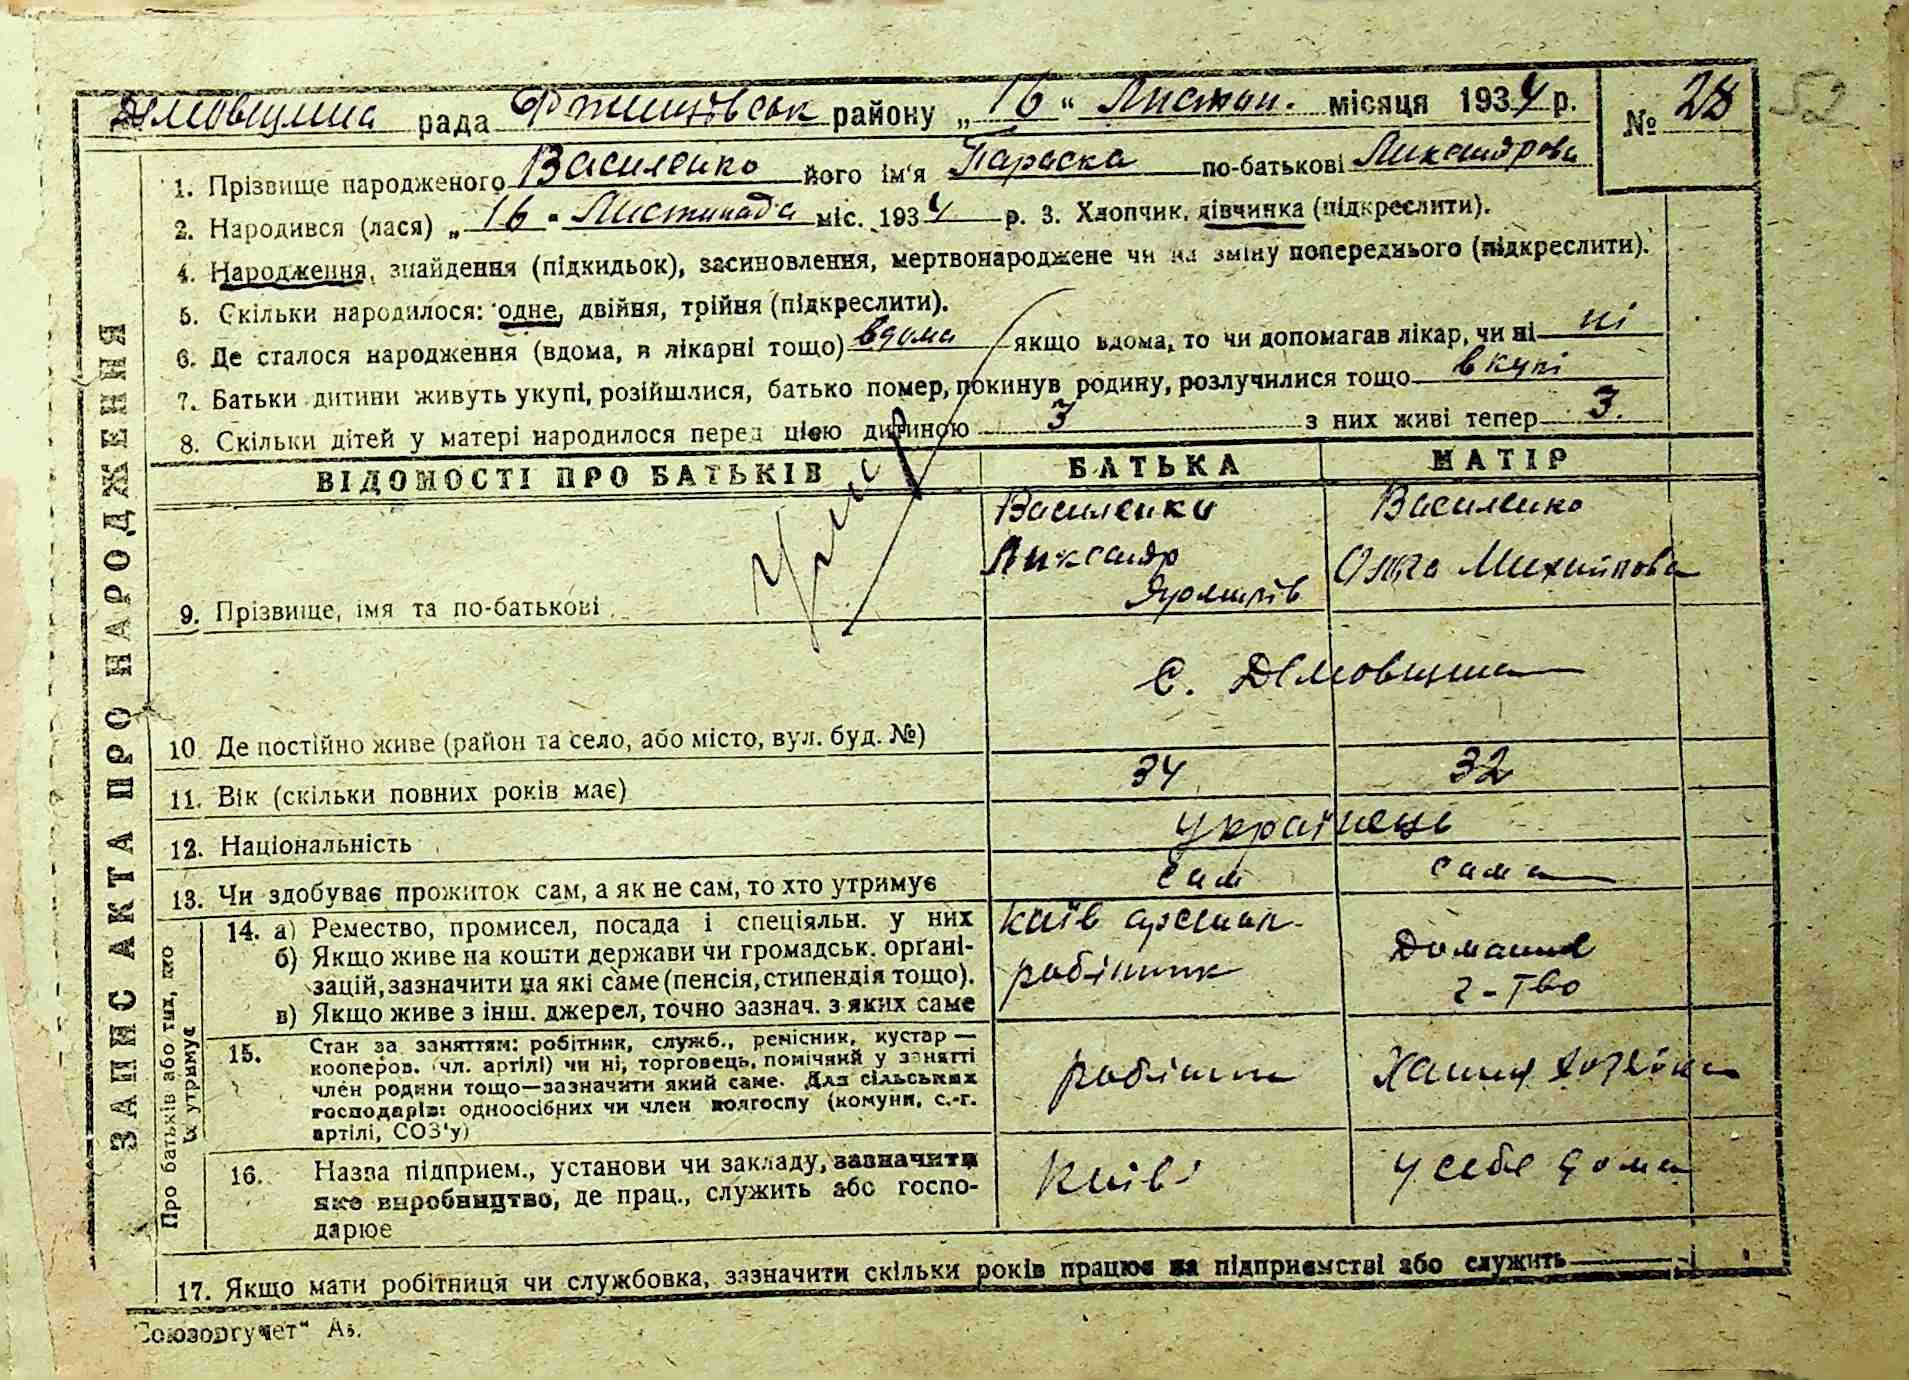 Демовщина рада Фастівськ району „ 16 “ Листоп. місяця 1934 р. № 28
52
1. Прізвище народженого Василенко його ім'я Параска по-батькові Лихсандрова
2. Народився (лася) „ 16 “ Листопада міс. 1934 р. 3. Хлопчик, дівчинка (підкреслити).
4. Народження, знайдення (підкидьок), засиновлення, мертвонароджене чи на зміну попереднього (підкреслити).
5. Скільки народилося: одне, двійня, трійня (підкреслити).
6. Де сталося народження (вдома, в лікарні тощо) вдома якщо вдома, то чи допомагав лікар, чи ні ні
7. Батьки дитини живуть укупі, розійшлися, батько помер, покинув родину, розлучилися тощо вкупі
8. Скільки дітей у матері народилося перед цією дитиною 3 з них живі тепер 3.
ВІДОМОСТІ ПРО БАТЬКІВ БАТЬКА МАТІР
Василенко Василенко
Ольга Михайлова
9. Прізвище, імя та по-батькові
с. Демовщина
10. Де постійно живе (район та село, або місто, вул. буд. №)
11. Вік (скільки повних років має) 34 32
12. Національність Українеці
13. Чи здобуває прожиток сам, а як не сам, то хто утримує сам сама
14. а) Ремество, промисел, посада і спеціяльн. у них Київ арсенал
б) Якщо живе на кошти держави чи громадськ. органі- робітник Домашнє
зацій, зазначити на які саме (пенсія, стипендія тощо). г-тво
в) Якщо живе з інш. джерел, точно зазнач. з яких саме
15. Стан за заняттям: робітник, служб., ремісник, кустар —
кооперов. (чл. артілі) чи ні, торговець, помічний у занятті
член родини тощо—зазначити який саме. Для сільських робітник
господарів: одноосібних чи член колгоспу (комуни, с.-г.
артілі, СОЗ'у)
16. Назва підприєм., установи чи закладу, зазначити Київ у себе дома
яке виробництво, де прац., служить або госпо-
дарює
17. Якщо мати робітниця чи службовка, зазначити скільки років працює на підприємстві або служить
ЗАПИС АКТА ПРО НАРОДЖЕННЯ
Про батьків або тих, хто
їх утримує
Союзоргучет“